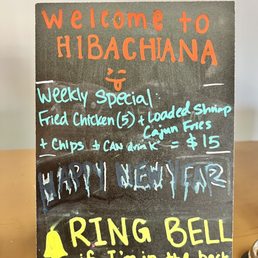 Welcome to
HIBACHIANA
Weekly Special:
Fried Chicken (5) + Loaded Shrimp
Cajun Fries
+ CHIPS + CAN drink = $15
HAPPY NEW YEAR
RING BELL
if I'm in the back